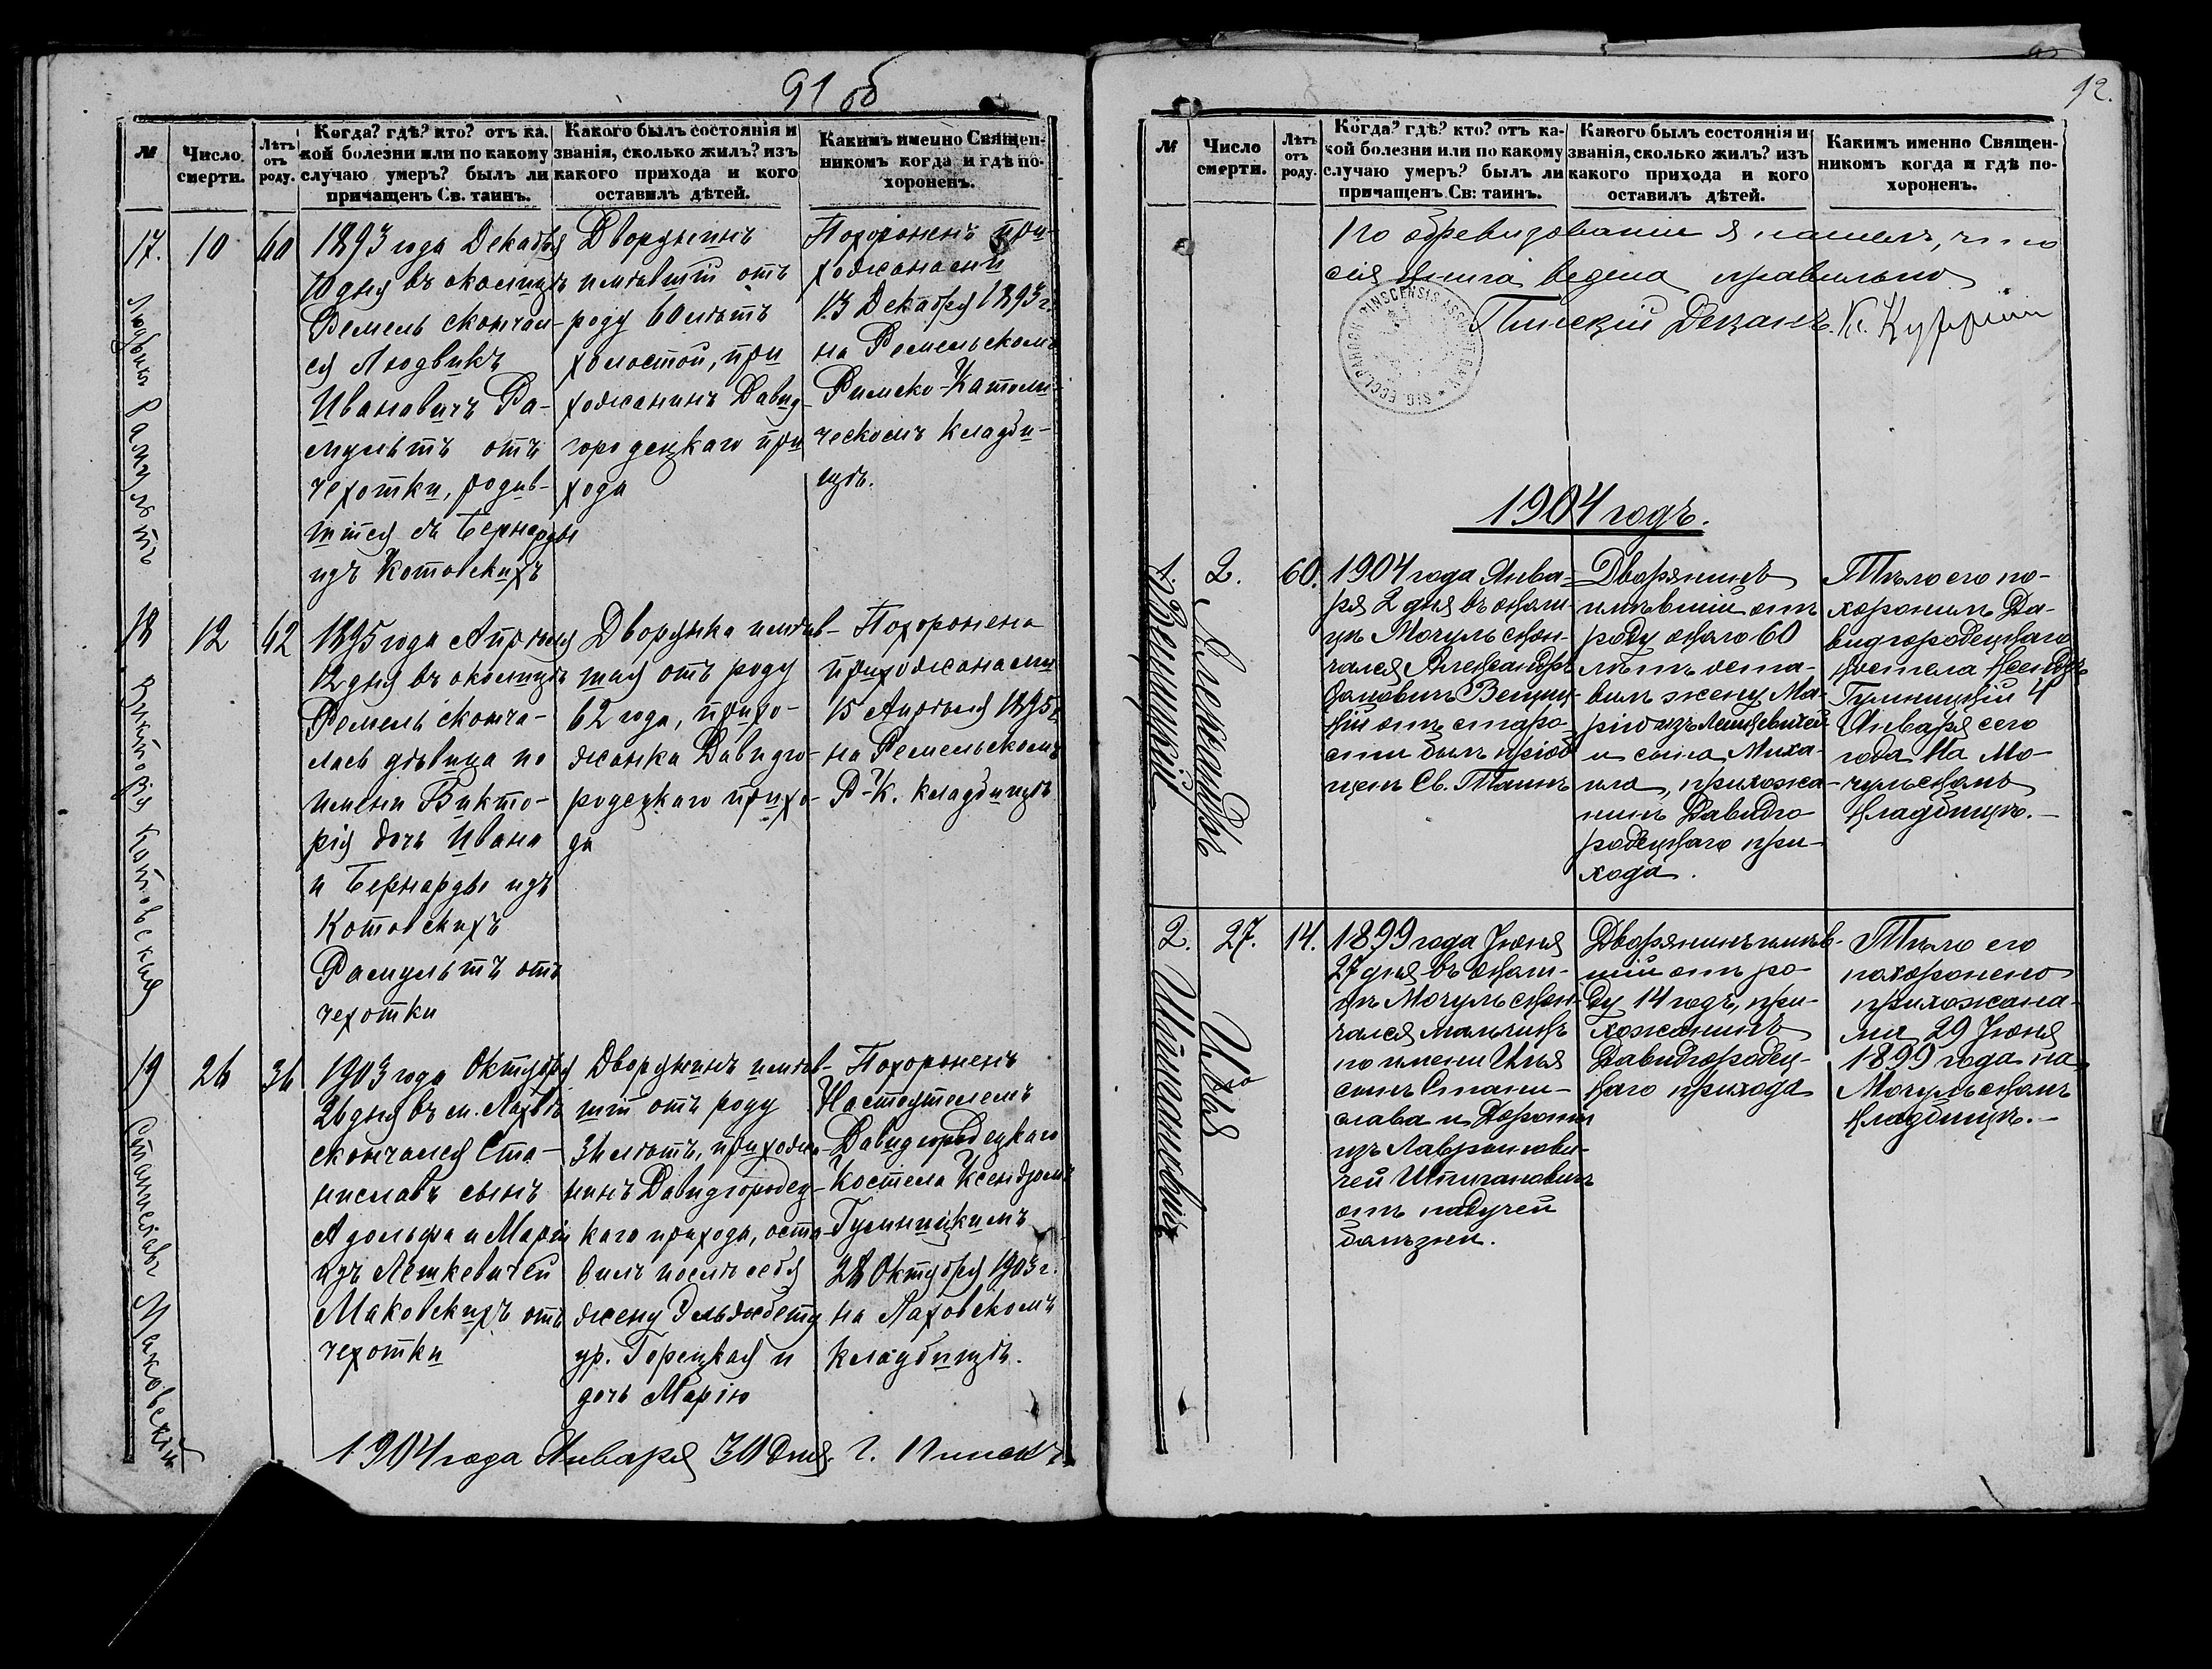 91 об
№
Число смерти.
Лѣтъ отъ роду.
Когда? гдѣ? кто? отъ ка-
кой болезни или по какому
случаю умеръ? былъ ли
причащенъ Св. таинъ.
Какого былъ состоянія и
званія, сколько жилъ? изъ
какого прихода и кого
оставилъ дѣтей.
Какимъ именно Священ-
никомъ когда и гдѣ по-
хороненъ.
17.
Людвикъ Рамультъ
10
60
1893 года Декабря
10 дня въ околицѣ
Ремель скончал-
ся Людвикъ
Ивановичъ Ра-
мультъ отъ
чехотки, родив-
шійся съ Бернарды
изъ Котовскихъ
Дворянинъ
имѣвшій отъ
роду 60 лѣтъ
холостой, при
хожанинъ Давид-
городецкаго при
хода
Похороненъ при-
хожанами
13 Декабря 1893 г.
на Ремельскомъ
Римско-Католи-
ческомъ кладби-
щѣ.
18
Викторія Котовская
12
62
1895 года Апрѣля
12 дня въ околицѣ
Ремель сконча-
лась дѣвица по
имени Викто-
рія дочь Ивана
и Бернарды изъ
Котовскихъ
Рамультъ отъ
чехотки
Дворянка имѣв-
шая отъ роду
62 года, прихо-
жанка Давидго-
родецкаго прихо-
да
Похоронена
прихожанами
15 Апрѣля 1895 г.
на Ремельскомъ
Р-К. кладбищѣ
19
Станиславъ Маковскій
26
36
1903 года Октября
26 дня въ м. Лахвѣ
скончался Ста-
ниславъ сынъ
Адольфа и Маріи
изъ Лешкевичей
Маковскихъ отъ
чехотки
Дворянинъ имѣв-
шій отъ роду
36 лѣтъ, прихожа-
нинъ Давидгородец-
каго прихода, оста-
вилъ послѣ себя
жену Эльжбету
ур. Горецкая и
дочь Марію
Похороненъ
Настоятелемъ
Давидгородецкаго
Костела Ксендзомъ
Гульницкимъ
28 Октября 1903 г.
на Лаховскомъ
кладбищѣ.
1904 года Января 30 дня. г. Пинскъ
92.
№
Число смерти.
Лѣтъ отъ роду.
Когда? гдѣ? кто? отъ ка-
кой болезни или по какому
случаю умеръ? былъ ли
причащенъ Св: таинъ.
Какого былъ состоянія и
званія, сколько жилъ? изъ
какого прихода и кого
оставилъ дѣтей.
Какимъ именно Священ-
никомъ когда и гдѣ по-
хороненъ.
По обревизованіи я нашелъ, что
сія книга ведена правильно
Пинскій Деканъ. Кс.
1904 годъ.
1.
Александръ
2.
60.
1904 года Янва-
ря 2 дня въ околи-
цѣ Мочуль скон-
чался Александръ
отъ старо-
сти былъ пріоб
щенъ Св. Таинъ
Дворянинъ
имѣвшій отъ
роду около 60
лѣтъ оста-
вилъ жену Ма-
рію изъ Лешкевичей
и сына Миха-
ила, прихожа-
нинъ Давидго
родецкаго при-
хода.
Тѣло его по-
хоронилъ Да-
видгородецкаго
костела ксендзъ
Гульницкій 4
Января сего
года на Мо-
чульскомъ
кладбищѣ.
2.
Илья
27.
14.
1899 года Іюня
27 дня въ околи-
цѣ Мочуль скон-
чался мальчикъ
по имени Илья
сынъ Стани-
слава и Дороты
изъ Лавринови-
чей
отъ падучей
болѣзни.
Дворянинъ имѣв-
шій отъ ро-
ду 14 годъ, при-
хожанинъ
Давидгородец-
каго прихода
Тѣло его
похоронено
прихожана-
ми 29 Іюня
1899 года на
Мочульскомъ
кладбищѣ.